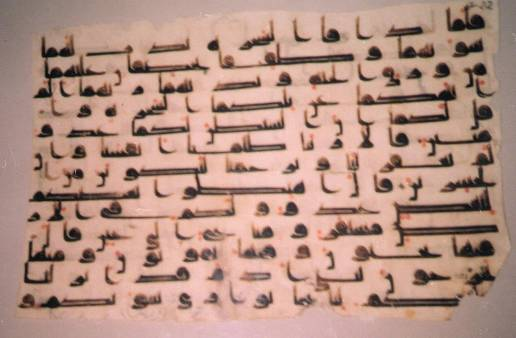 فلما ذاقا الشجرة بدت لهما
سوتهما وطفقا يخصفن عليهما
من ورق الجنة وناديهما ربهما الم
انهكما عن تلكما الشجرة وا
قل لكما ان الشيطن لكما عدو
مبين قالا ربنا ظلمنا انفسنا وان
لم تغفر لنا وترحمنا لنكونن من ا
لخسرين قال اهبطوا بعضكم
لبعض عدو ولكم في الار
ض مستقر ومتع الى حين قال
فيها تحيون وفيها تموتون ومنها
تخرجون يبني ادم قد انزلنا
عليكم لباسا يوري سوتكم و